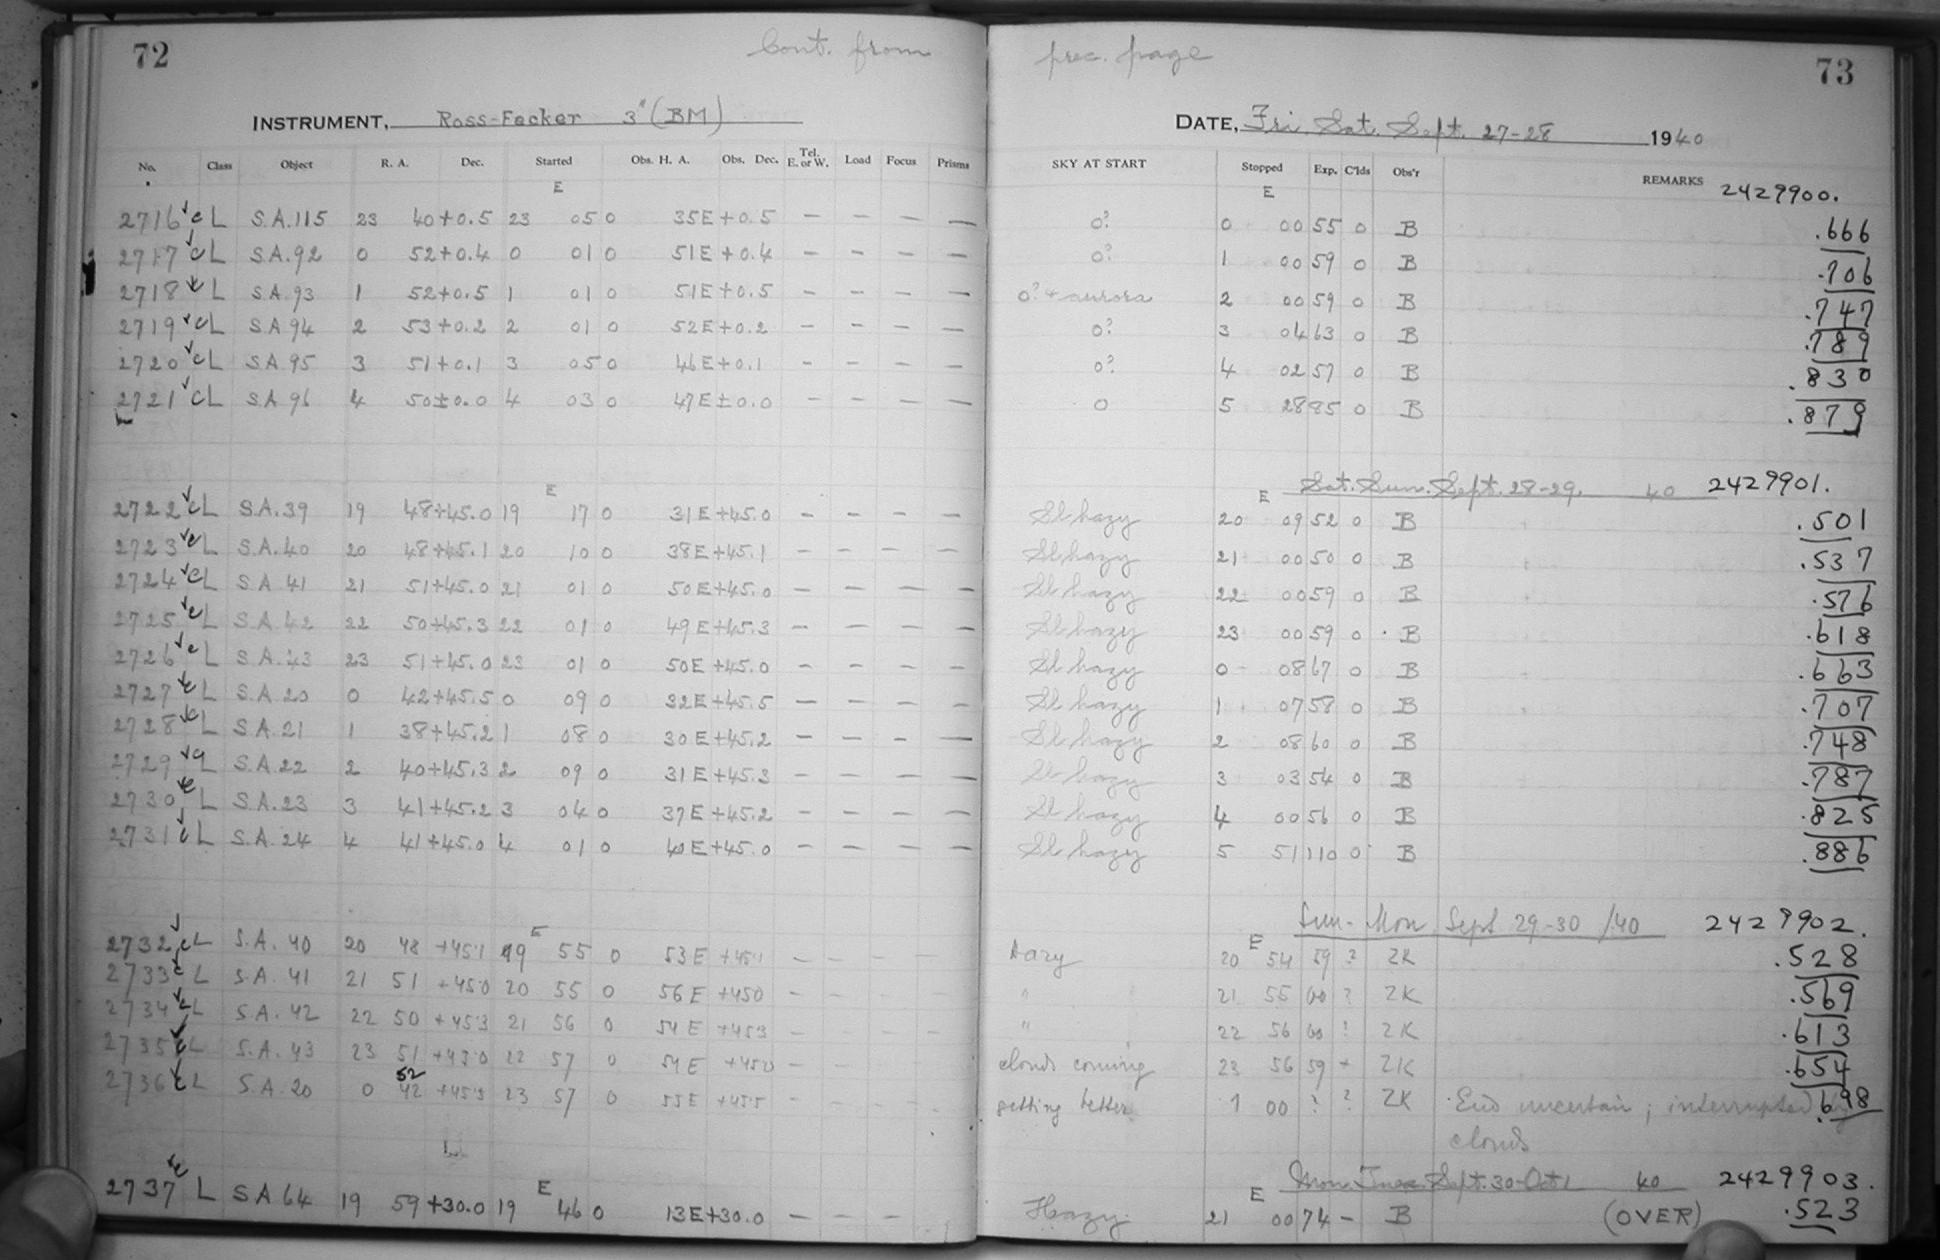 72
Cont. from
INSTRUMENT, Ross-Fecker 3" (BM)
No. Class Object R. A. Dec. Started Obs. H. A. Obs. Dec. Tel. E. or W. Load Focus Prisms
E
2716 cL S.A.115 23 40 +0.5 23 05 0 35E +0.5 – – – –
2717 cL S.A.92 0 52 +0.4 0 01 0 51E +0.4 – – – –
2718 cL S.A.93 1 52 +0.5 1 01 0 51E +0.5 – – – –
2719 cL S.A.94 2 53 +0.2 2 01 0 52E +0.2 – – – –
2720 cL S.A.95 3 51 +0.1 3 05 0 46E +0.1 – – – –
2721 cL S.A.96 4 50 ±0.0 4 03 0 47E ±0.0 – – – –
E
2722 cL S.A.39 19 48 +45.0 19 17 0 31E +45.0 – – – –
2723 cL S.A.40 20 48 +45.1 20 10 0 38E +45.1 – – – –
2724 cL S.A.41 21 51 +45.0 21 01 0 50E +45.0 – – – –
2725 cL S.A.42 22 50 +45.3 22 01 0 49E +45.3 – – – –
2726 cL S.A.43 23 51 +45.0 23 01 0 50E +45.0 – – – –
2727 cL S.A.20 0 42 +45.5 0 09 0 32E +45.5 – – – –
2728 cL S.A.21 1 38 +45.2 1 08 0 30E +45.2 – – – –
2729 cL S.A.22 2 40 +45.3 2 09 0 31E +45.3 – – – –
2730 cL S.A.23 3 41 +45.2 3 04 0 37E +45.2 – – – –
2731 cL S.A.24 4 41 +45.0 4 01 0 40E +45.0 – – – –
E
2732 cL S.A. 40 20 48 +45.1 19 55 0 53E +45.1 – – – –
2733 cL S.A. 41 21 51 +45.0 20 55 0 56E +45.0 – – – –
2734 cL S.A. 42 22 50 +45.3 21 56 0 54E +45.3 – – – –
2735 cL S.A. 43 23 51 +45.0 22 57 0 54E +45.0 – –
52
2736 cL S.A. 20 0 42 +45.5 23 57 0 55E +45.5 – – – –
E
2737 cL SA 64 19 59 +30.0 19 46 0 13E +30.0 – – – –
prec. page
73
DATE, Fri. Sat. Sept. 27-28 1940
SKY AT START Stopped Exp. C'lds Obs'r REMARKS 2429900.
E
0? 0 00 55 0 B .666
0? 1 00 59 0 B .706
0? + aurora 2 00 59 0 B .747
0? 3 04 63 0 B .789
0? 4 02 57 0 B .830
0 5 28 85 0 B .879
E Sat. Sun. Sept. 28-29. 40 2429901.
Sl hazy 20 09 52 0 B .501
Sl hazy 21 00 50 0 B .537
Sl hazy 22 00 59 0 B .576
Sl hazy 23 00 59 0 B .618
Sl hazy 0 08 67 0 B .663
Sl hazy 1 07 58 0 B .707
Sl hazy 2 08 60 0 B .748
Sl hazy 3 03 54 0 B .787
Sl hazy 4 00 56 0 B .825
Sl hazy 5 51 110 0 B .886
Sun - Mon Sept 29-30 /40 2429902.
E
Hazy 20 54 59 ? ZK .528
" 21 55 60 ? ZK .569
" 22 56 60 ? ZK .613
clouds coming 23 56 59 + ZK .654
getting better 1 00 ? ? ZK End uncertain; interrupted by .698
clouds
E Mon. Tues. Sept. 30-Oct 1 40 2429903.
Hazy 21 00 74 – B (OVER) .523